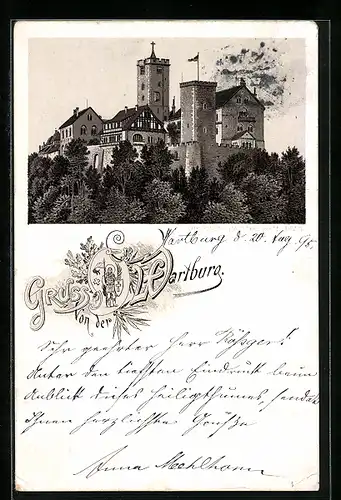 Wartburg d. 20. Aug. 95.
Gruss
von der
Wartburg.
Sehr geehrter Herr
Unter den tiefsten Eindruck beim
Anblick dieses Heiligthumes, sendet
Ihnen herzlichste Grüße
Anna Mehlhorn